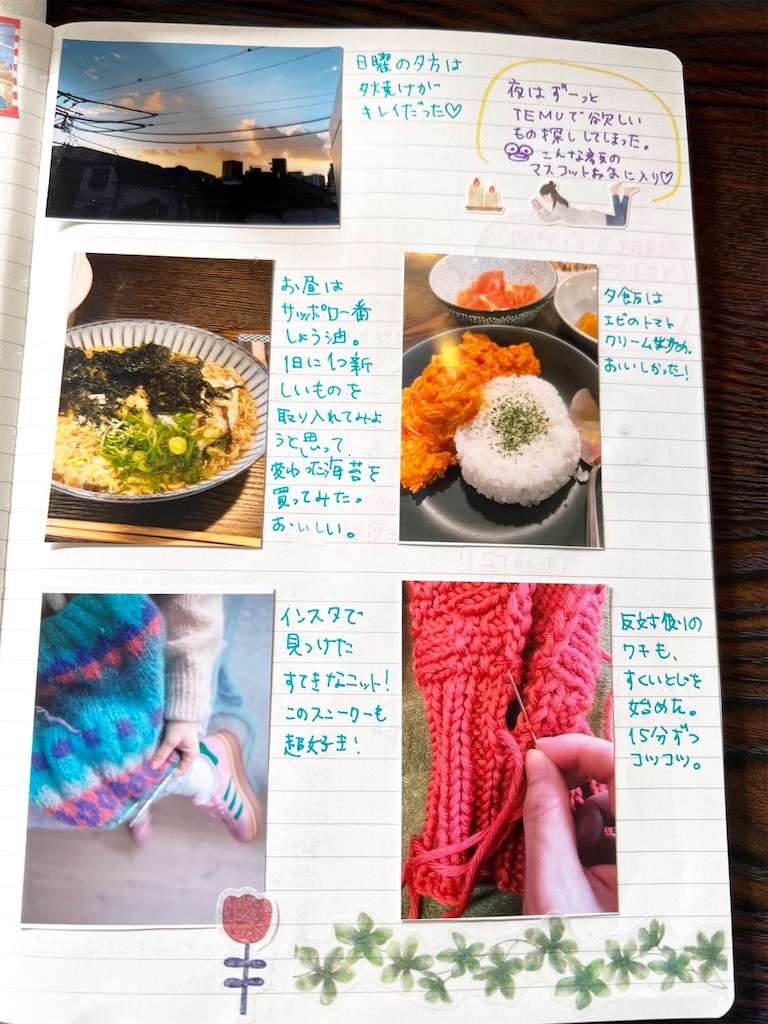 日曜の夕方は
夕焼けが
キレイだった♡
夜はずーっと
TEMUで欲しい
もの探ししてしまった。
こんな感じの
マスコットお気に入り♡
お昼は
サッポロ一番
しょう油。
1日に1つ新
しいものを
取り入れてみよ
うと思って、
変わった海苔を
買ってみた。
おいしい。
夕飯は
エビのトマト
クリーム炒め。
おいしかった!
インスタで
見つけた
すてきなニット!
このスニーカーも
超好き!
反対側の
ワキも、
すくいとじを
始めた。
15分ずつ
コツコツ。